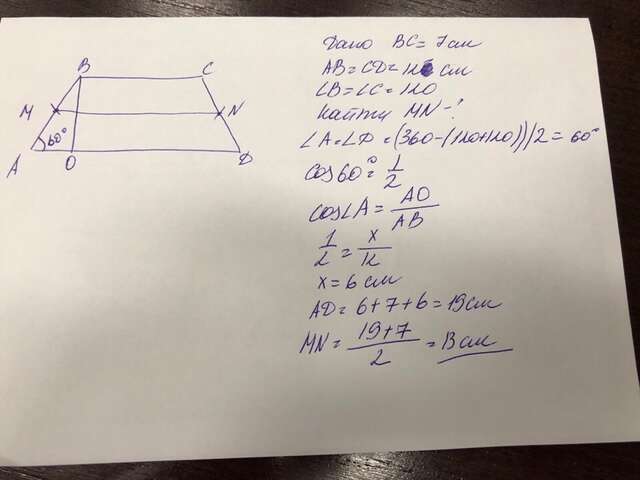 Дано BC = 7 см
AB = CD = 12 см
∠B = ∠C = 120
Найти MN - ?
∠A = ∠D = (360 - (120+120))/2 = 60°
cos 60° = 1/2
cos∠A = AO/AB
1/2 = x/12
x = 6 см
AD = 6 + 7 + 6 = 19 см
MN = (19+7)/2 = 13 см
B C
M N
60°
A O D